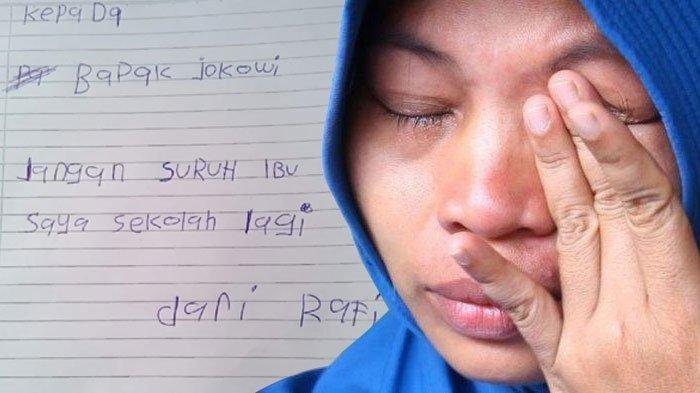 Kepada
Bapak jokowi
Jangan SURUH IBU
saya sekolah lagi
dari Rafi